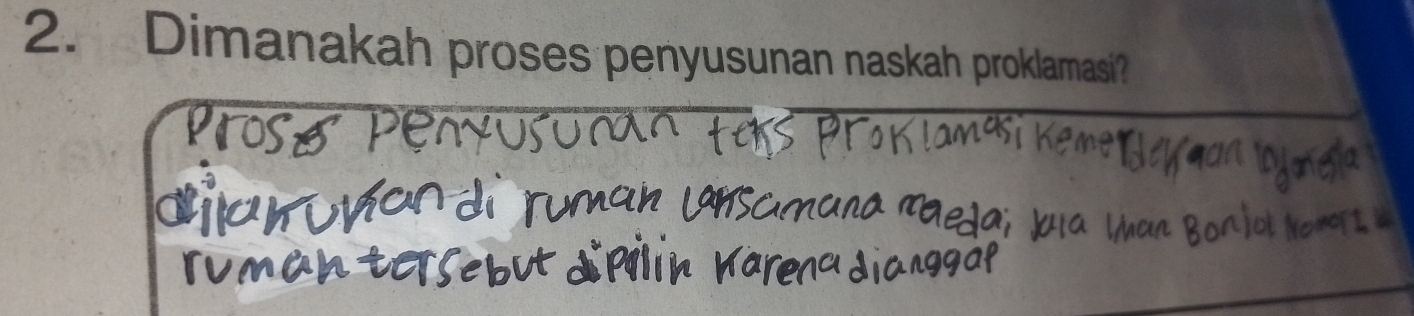 2. Dimanakah proses penyusunan naskah proklamasi?
Proses Penyusunan teks Proklamasi Kemerdekaan
dilakukan di rumah laksamana maeda, Iman Bonjol Nomor 1
rumah tersebut dipilih karena dianggap